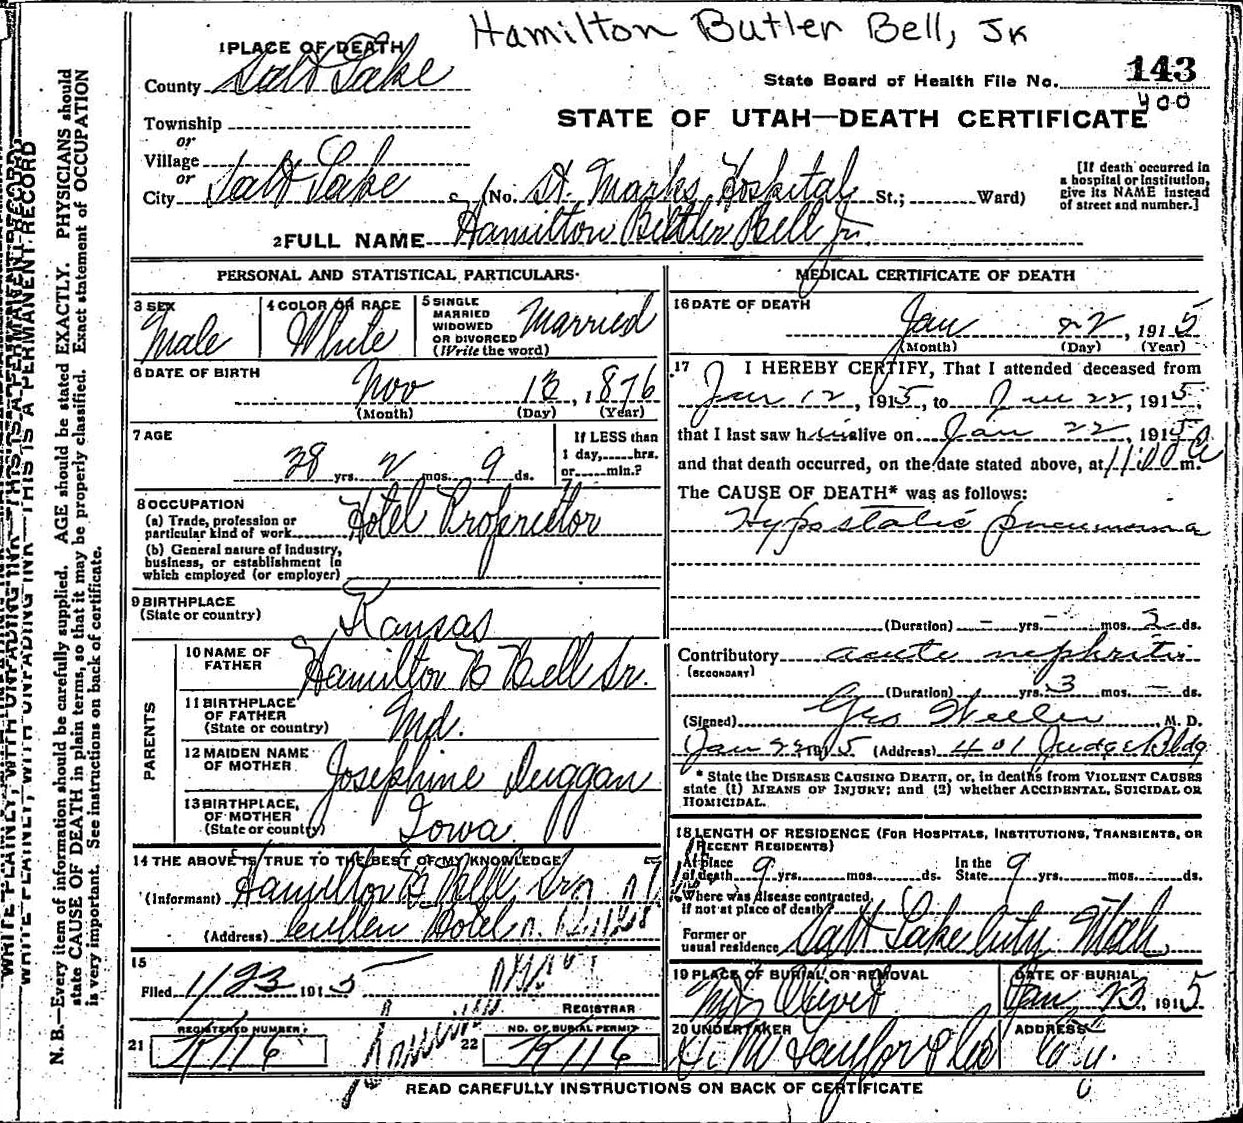 Hamilton Butler Bell, Jr
1 PLACE OF DEATH
County Salt Lake
State Board of Health File No. 143
400
Township
or
Village
or
City Salt Lake (No. St. Marks Hospital St.; Ward)
STATE OF UTAH—DEATH CERTIFICATE
[If death occurred in
a hospital or institution,
give its NAME instead
of street and number.]
2 FULL NAME Hamilton Butler Bell Jr.
PERSONAL AND STATISTICAL PARTICULARS
3 SEX
Male
4 COLOR OR RACE
White
5 SINGLE
MARRIED
WIDOWED
OR DIVORCED
(Write the word)
Married
6 DATE OF BIRTH
Nov 13, 1876
(Month) (Day) (Year)
7 AGE
38 yrs. 2 mos. 9 ds.
If LESS than
1 day, hrs.
or min.?
8 OCCUPATION
(a) Trade, profession or
particular kind of work Hotel Proprietor
(b) General nature of industry,
business, or establishment in
which employed (or employer)
9 BIRTHPLACE
(State or country)
Kansas
PARENTS
10 NAME OF
FATHER
Hamilton B Bell Sr.
11 BIRTHPLACE
OF FATHER
(State or country)
Md.
12 MAIDEN NAME
OF MOTHER
Josephine Duggan
13 BIRTHPLACE
OF MOTHER
(State or country)
Iowa
14 THE ABOVE IS TRUE TO THE BEST OF MY KNOWLEDGE
(Informant) Hamilton B Bell Sr
(Address) Cullen Hotel
15
Filed 1/23 1915
REGISTRAR
REGISTERED NUMBER
21 K116
NO. OF BURIAL PERMIT
22 K116
MEDICAL CERTIFICATE OF DEATH
16 DATE OF DEATH
Jan 22, 1915
(Month) (Day) (Year)
17 I HEREBY CERTIFY, That I attended deceased from
Jan 12, 1915, to Jan 22, 1915,
that I last saw him alive on Jan 22, 1915
and that death occurred, on the date stated above, at m.
The CAUSE OF DEATH* was as follows:
Hypostatic pneumonia
(Duration) — yrs. — mos. 2 ds.
Contributory acute nephritis
(SECONDARY)
(Duration) yrs. 3 mos. — ds.
(Signed) Geo , M. D.
Jan 22 1915 (Address) 401 Judge Bldg
* State the DISEASE CAUSING DEATH, or, in deaths from VIOLENT CAUSES
state (1) MEANS OF INJURY; and (2) whether ACCIDENTAL, SUICIDAL OR
HOMICIDAL.
18 LENGTH OF RESIDENCE (FOR HOSPITALS, INSTITUTIONS, TRANSIENTS, OR
RECENT RESIDENTS)
At place
of death 9 yrs. mos. ds.
In the
State 9 yrs. mos. ds.
Where was disease contracted,
if not at place of death?
Former or
usual residence Salt Lake City Utah
19 PLACE OF BURIAL OR REMOVAL
Mt Olivet
DATE OF BURIAL
Jan 23 1915
20 UNDERTAKER
ADDRESS
City.
READ CAREFULLY INSTRUCTIONS ON BACK OF CERTIFICATE
WRITE PLAINLY, WITH UNFADING INK—THIS IS A PERMANENT RECORD
N. B.—Every item of information should be carefully supplied. AGE should be stated EXACTLY. PHYSICIANS should
state CAUSE OF DEATH in plain terms, so that it may be properly classified. Exact statement of OCCUPATION
is very important. See instructions on back of certificate.